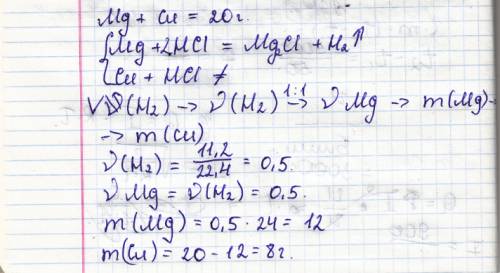 Mg + Cu = 20г.
{Mg + 2HCl = MgCl + H₂↑
{Cu + HCl ≠
V(H₂) → ν(H₂) 1:1→ ν Mg → m(Mg) →
→ m(Cu)
ν(H₂) = 11,2/22,4 = 0,5.
ν Mg = ν(H₂) = 0,5.
m(Mg) = 0,5 · 24 = 12
m(Cu) = 20 - 12 = 8г.